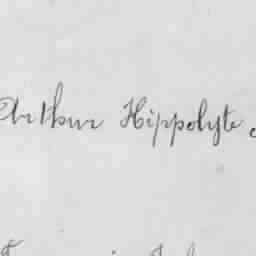 Arthur Hippolyte